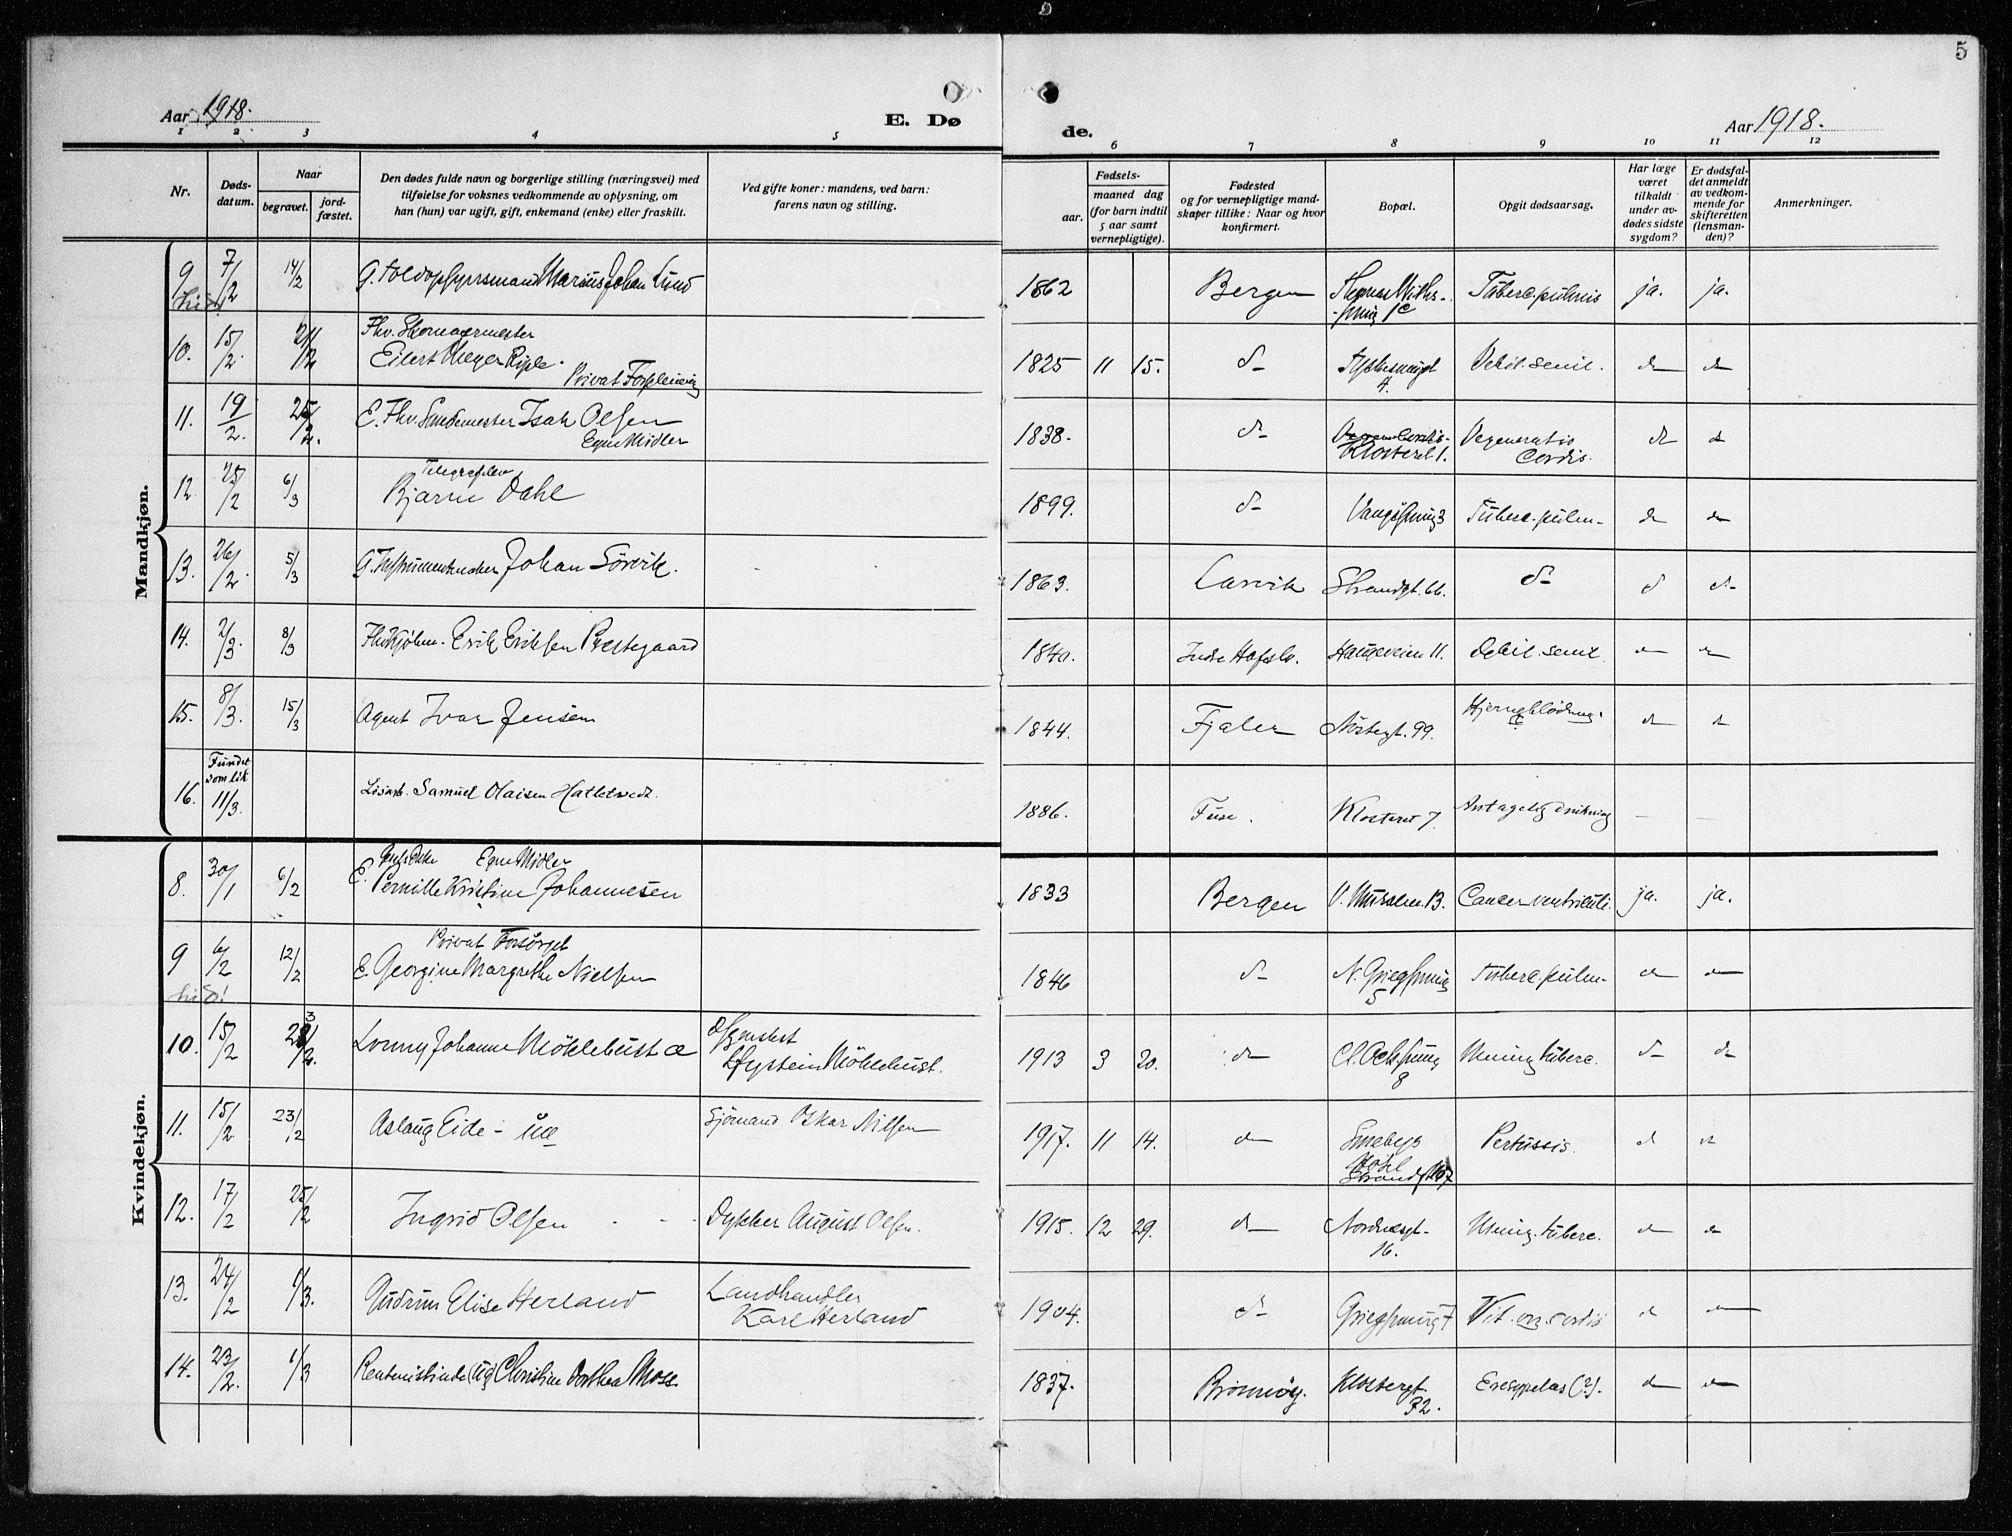 5
Aar 1918.
E. Dø
de.
Aar 1918.
1 2 3 4 5 6 7 8 9 10 11 12
Nr.
Døds-
datum.
Naar
begravet.
jord-
fæstet.
Den dødes fulde navn og borgerlige stilling (næringsvei) med
tilføielse for voksnes vedkommende av oplysning, om
han (hun) var ugift, gift, enkemand (enke) eller fraskilt.
Ved gifte koner: mandens, ved barn:
farens navn og stilling.
Fødsels-
aar.
maaned dag
(for barn indtil
5 aar samt
vernepligtige).
Fødested
og for vernepligtige mand-
skaper tillike: Naar og hvor
konfirmert.
Bopæl.
Opgit dødsaarsag.
Har læge
været
tilkaldt
under av-
dødes sidste
sygdom?
Er dødsfal-
det anmeldt
av vedkom-
mende for
skifteretten
(lensman-
den)?
Anmerkninger.
Mandkjøn.
9 7/2 14/2 G. Toldopsynsmand Marius Johan Lund 1862 Bergen 1c Tuberc. pulmis ja. ja.
10. 15/2. Fhv. Skomagermester
Eilert Meyer Riple.
Privat Forpleining
1825 11 15. d- 4. Debil. senil. do do
11. 19/2. 25/2. E. Fhv. Smedemester Isak Olsen
Egne Midler
1838. d- Klosteret 1. Degeneratio
Cordis. d d
12. 25/2 6/3 Telegrafelev
Bjarne Dahl
1899. d- 3 Tuberc. pulm- do do
13. 26/2. 5/3 G. Instrumentmaker Johan Sörvik. 1863. Larvik Strandgt. 66. d- d d-
14. 2/3. 8/3 Erik Eriksen Prestegaard 1840. Indre Hafslo. Haugeveien 11. Debil. senil. do do
15. 8/3. 15/3 Agent Ivar Jensen 1844. Fjaler Nöstegt. 99. Hjerneblödning. do d
16. Fundet
som lik
11/3. Lösarb. Samuel Olaisen Hatletvedt. 1886. Fuse. Klosteret 7. Antagelig drukning — —
Kvindekjøn.
8. 30/1 6/2 Egne Midler
E. Pernille Kristine Johannesen 1833 Bergen V. Muralm. 13. Cancer ventriculi. ja. ja.
9 6/2 12/2 Privat Forsörget
E. Georgine Margrethe Nielsen 1846 d- N. Griegsmug
5 Tuberc. pulm- do do
10. 15/2 Lonny Johanne Möklebust Möklebust. 1913 3 20. do 8 Mening. tuberc. d- do
11. 15/2 23/2 Aslaug Eide - Sjömand Oskar Nilsen 1917. 11 14. do Pertussis. d d
12. 17/2 25/2 Ingrid Olsen Dykker August Olsen. 1915. 12 29. d- Nordnesgt.
16. Mening. tuberc. d do
13. 24/2 1/3. Gudrun Elise Herland Landhandler
Karl Herland 1904. d- Griegsmug 7 Vit. org. cordis d do
14. 23/2. 1/3 Rentenistinde (ug) Christine Dorthea Moss 1837. Brönnöy. Klostergt.
32. Eresypelas (?). do do